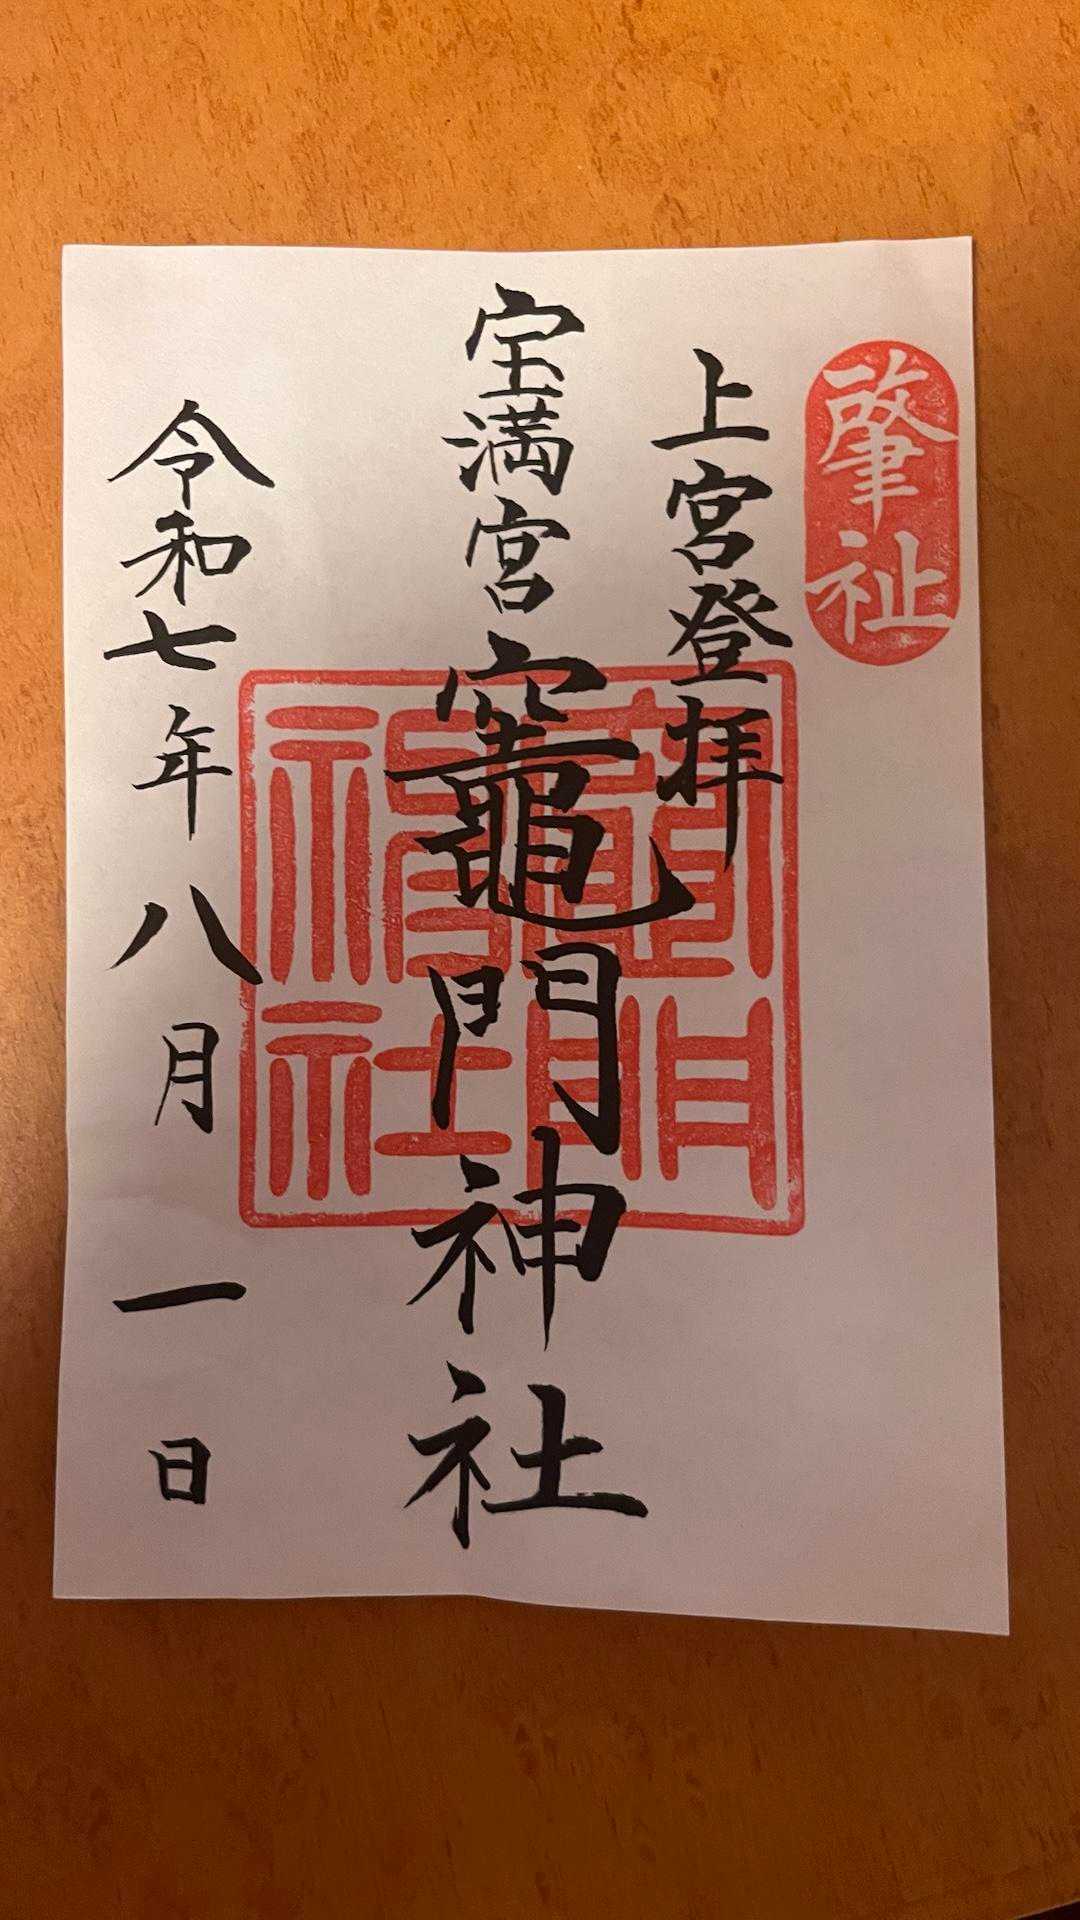 肇祉
上宮登拝
宝満宮竈門神社
竈門神社
令和七年八月一日